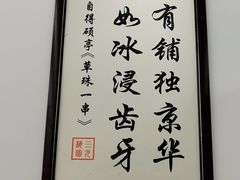 有铺独京华
如冰浸齿牙
自得硕亭《草珠一串》